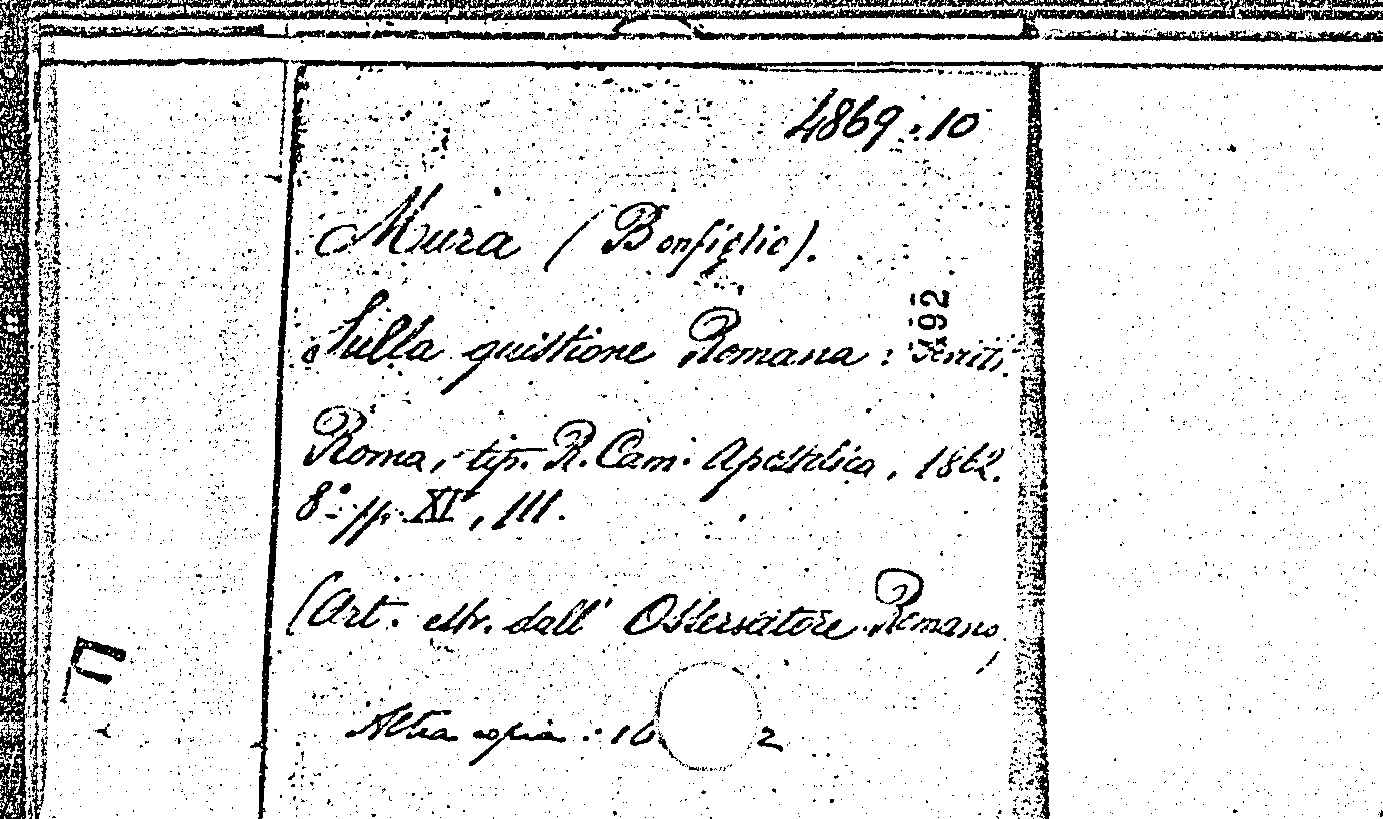 4869.10
Mura (Bonfiglio).
492
Sulla quistione Romana: Scritti.
Roma, tip. R. Cam. Apostolica, 1862.
8.° pp. XV, 111.
(Art. estr. dall' Osservatore Romano,
Altra copia: 16 2